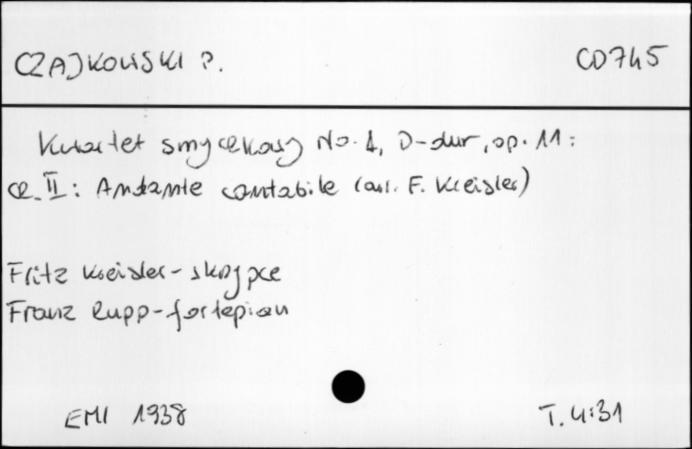 CZAJKOWSKI P.
CD745
Kwartet smyczkowy No. 1, D-dur, op. 11:
cz. II: Andante cantabile (arr. F. Kreisler)
Fritz Kreisler - skrzypce
Franz Rupp - fortepian
EMI 1938
T. 4:31